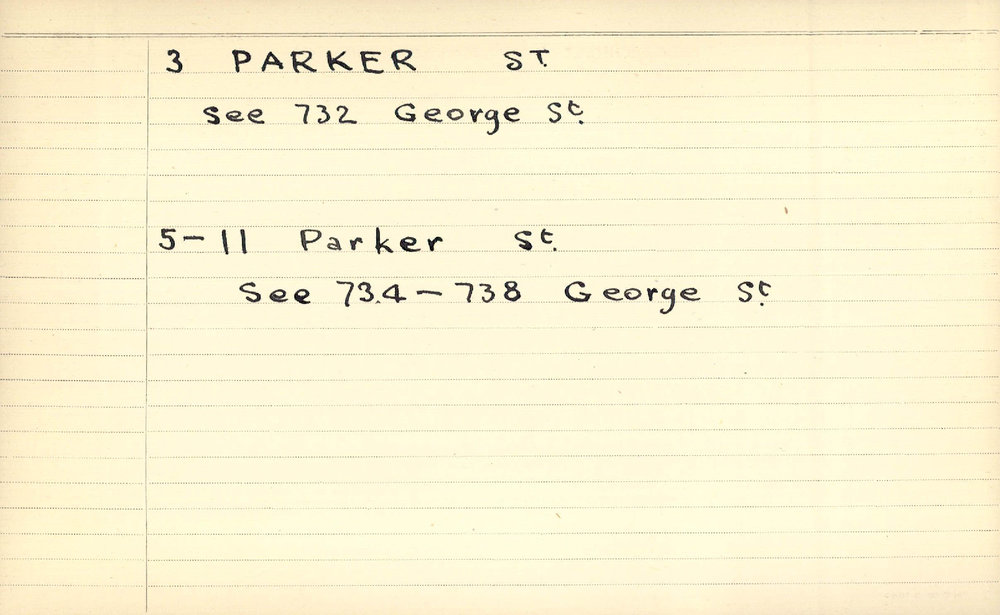 3 PARKER ST.
See 732 George St.
5-11 Parker St.
See 734-738 George St